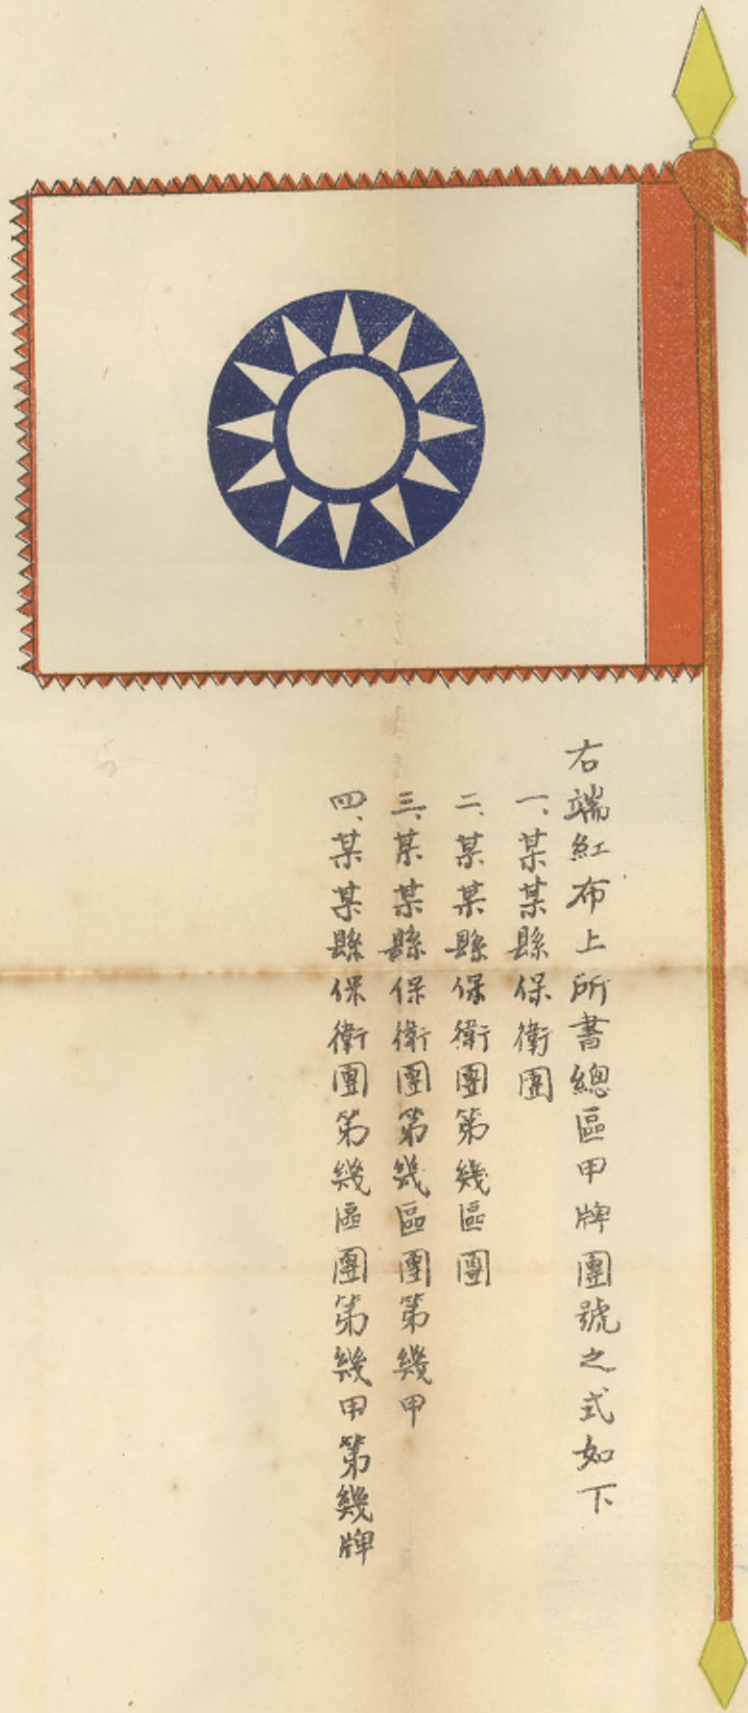 右端紅布上所書總區甲牌團號之式如下
一、某某縣保衛團
二、某某縣保衛團第幾區團
三、某某縣保衛團第幾區團第幾甲
四、某某縣保衛團第幾區團第幾甲第幾牌